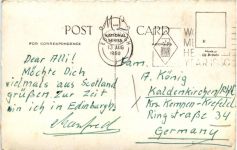 POST CARD
FOR CORRESPONDENCE
NATIONAL
SERIES
13 AUG
Dear Alli!
Möchte Dich
vielmals aus Scotland
grüßen. Zur Zeit
bin ich in Edinburgh.
Manfred
Fam.
A. König
Kaldenkirchen/Rhld.
Krs. Kempen-Krefeld
Ringstraße 34
Germany